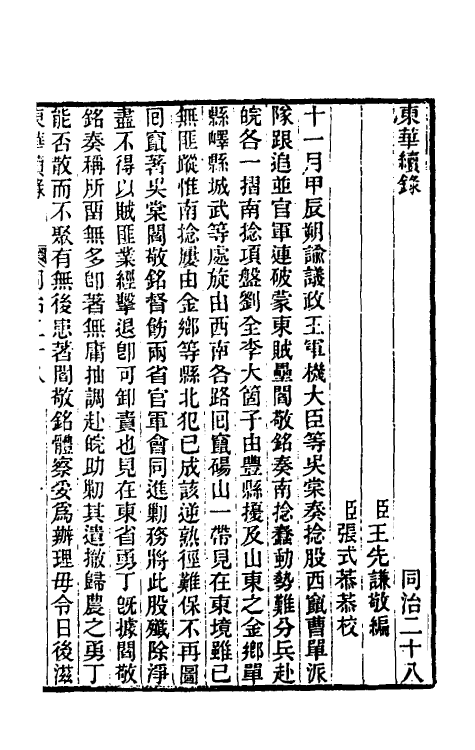 東華續錄　同治二十八
臣王先謙敬編
臣張式恭恭校
十一月甲辰朔諭議政王軍機大臣等吳棠奏捻股西竄曹單派
隊跟追並官軍連破蒙東賊壘閻敬銘奏南捻蠢動勢難分兵赴
皖各一摺南捻項盤劉全李大箇子由豐縣擾及山東之金鄉單
縣嶧縣城武等處旋由西南各路回竄碭山一帶見在東境雖已
無匪蹤惟南捻屢由金鄉等縣北犯已成該逆熟徑難保不再圖
回竄著吳棠閻敬銘督飭兩省官軍會同進勦務將此股殲除淨
盡不得以賊匪業經擊退卽可卸責也見在東省勇丁旣據閻敬
銘奏稱所留無多卽著無庸抽調赴皖助勦其遣撤歸農之勇丁
能否散而不聚有無後患著閻敬銘體察妥爲辦理毋令日後滋
東華續錄　同治二十八